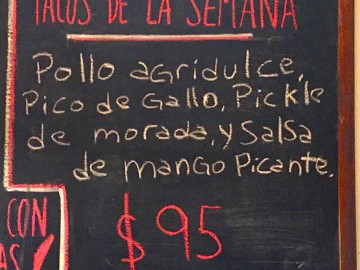 TACOS DE LA SEMANA
Pollo agridulce,
Pico de Gallo, Pickle
de morada, y Salsa
de mango Picante.
CON
$95